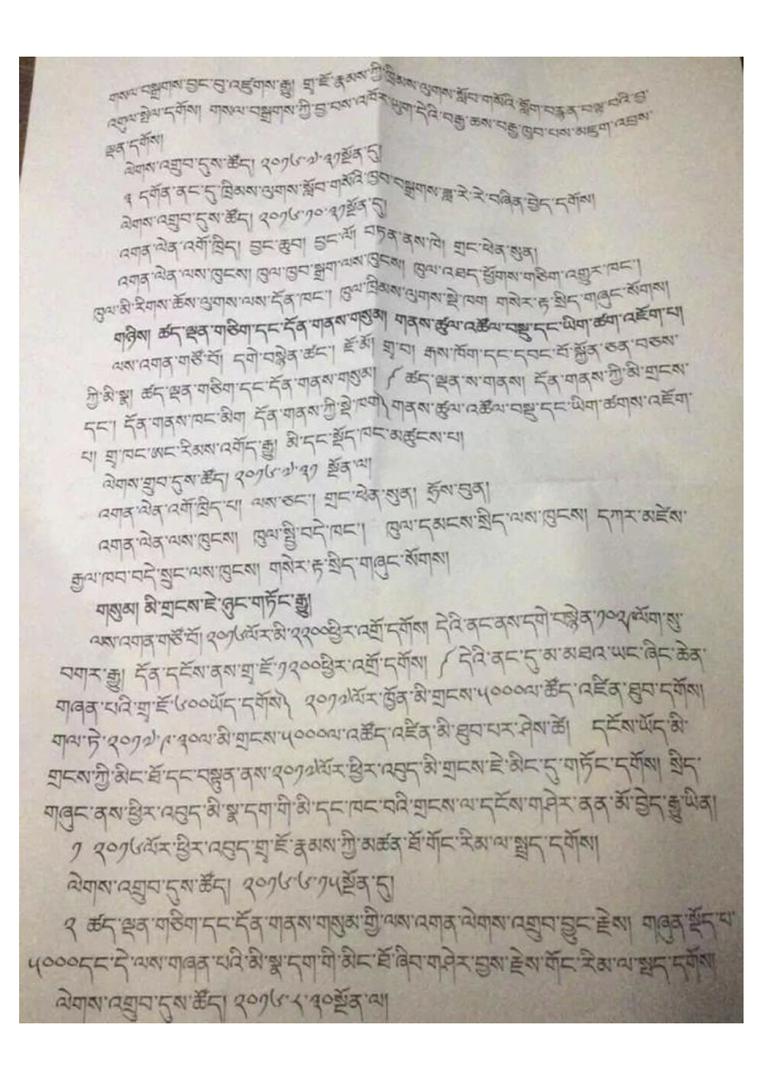 གསལ་བསྒྲགས་བྱང་བུ་འཛུགས་རྒྱུ། གྲྭ་ཇོ་རྣམས་ཀྱི་ཁྲིམས་ལུགས་སློབ་གསོའི་སློག་བརྙན་བལྟ་བའི་བྱ་
འགུལ་སྤེལ་དགོས། གསལ་བསྒྲགས་ཀྱི་བྱ་བས་འཁོར་ཡུག་དེའི་བརྒྱ་ཆས་བརྒྱ་ཁྱབ་པས་མཇུག་འབྲས་
ལྡན་དགོས།
ལེགས་འགྲུབ་དུས་ཚོད། ༢༠༡༦་༧་༣༡སྔོན་དུ།
༣ དགོན་ནང་དུ་ཁྲིམས་ལུགས་སློབ་གསོའི་ཁྱབ་བསྒྲགས་ཟླ་རེ་རེ་བཞིན་བྱེད་དགོས།
ལེགས་འགྲུབ་དུས་ཚོད། ༢༠༡༦་༡༠་༣༡སྔོན་དུ།
འགན་ལེན་འགོ་ཁྲིད། བྱང་ཆུབ། བྱང་ལོ། བཏན་ནས་ཁེ། གྲང་ཕེན་སུན།
འགན་ལེན་ལས་ཁུངས། ཁུལ་ཁྱབ་སྒྲག་ལས་ཁུངས། ཁུལ་འཐབ་ཕྱོགས་གཅིག་འགྱུར་ཁང་།
ཁུལ་མི་རིགས་ཆོས་ལུགས་ལས་དོན་ཁང་། ཁུལ་ཁྲིམས་ལུགས་སྡེ་ཁག གསེར་རྟ་སྲིད་གཞུང་སོགས།
གཉིས། ཚད་ལྡན་གཅིག་དང་དོན་གནས་གསུམ། གནས་ཚུལ་འཚོལ་བསྡུ་དང་ཡིག་ཚག་འཇོག་པ།
ལས་འགན་གཙོ་བོ། དགེ་བསྙེན་ཚང་། ཇོ་མོ། གྲྭ་བ། རྒས་ཁོག་དང་དབང་པོ་སྐྱོན་ཅན་བཅས་
ཀྱི་མི་སྣ། ཚད་ལྡན་གཅིག་དང་དོན་གནས་གསུམ། (ཚད་ལྡན་ས་གནས། དོན་གནས་ཀྱི་མི་གྲངས་
དང་། དོན་གནས་ཁང་མིག དོན་གནས་ཀྱི་སྡེ་ཁག)གནས་ཚུལ་འཚོལ་བསྡུ་དང་ཡིག་ཚགས་འཇོག་
པ། གྲྭ་ཁང་ཨང་རིམས་འགོད་རྒྱུ། མི་དང་སྡོད་ཁང་མཚུངས་པ།
ལེགས་གྲུབ་དུས་ཚོད། ༢༠༡༦་༧་༣༡ སྔོན་ལ།
འགན་ལེན་འགོ་ཁྲིད་པ། ལས་ཅང་། གྲང་ཕེན་སུན། ཧྲོས་བུན།
འགན་ལེན་ལས་ཁུངས། ཁུལ་སྤྱི་བདེ་ཁང་། ཁུལ་དམངས་སྲིད་ལས་ཁུངས། དཀར་མཛེས་
རྒྱལ་ཁབ་བདེ་སྲུང་ལས་ཁུངས། གསེར་རྟ་སྲིད་གཞུང་སོགས།
གསུམ། མི་གྲངས་ཇེ་ཉུང་གཏོང་རྒྱུ།
ལས་འགན་གཙོ་བོ། ༢༠༡༦ལོར་མི་༢༢༠༠ཕྱིར་འགྲོ་དགོས། དེའི་ནང་ནས་དགེ་བསྙེན་༡༠༢༨ལོག་སུ་
བགར་རྒྱུ། དོན་དངོས་ནས་གྲྭ་ཇོ་༡༢༠༠ཕྱིར་འགྲོ་དགོས། (དེའི་ནང་དུ་མ་མཐའ་ཡང་ཞིང་ཆེན་
གཞན་པའི་གྲྭ་ཇོ་༦༠༠ཡོད་དགོས) ༢༠༡༧ལོར་ཁྱོན་མི་གྲངས་༥༠༠༠ལ་ཚོད་འཛིན་ཐུབ་དགོས།
གལ་ཏེ་༢༠༡༧་༩་༣༠ལ་མི་གྲངས་༥༠༠༠ལ་འཚོད་འཛིན་མི་ཐུབ་པར་ཤེས་ཚེ། དངོས་ཡོད་མི་
གྲངས་ཀྱི་མིང་ཐོ་དང་བསྟུན་ནས་༢༠༡༧ལོར་ཕྱིར་འབུད་མི་གྲངས་ཇེ་མིང་དུ་གཏོང་དགོས། སྲིད་
གཞུང་ནས་ཕྱིར་འབུད་མི་སྣ་དག་གི་མི་དང་ཁང་བའི་གྲངས་ལ་དངོས་གཤེར་ནན་མོ་བྱེད་རྒྱུ་ཡིན།
༡ ༢༠༡༦ལོར་ཕྱིར་འབུད་གྲྭ་ཇོ་རྣམས་ཀྱི་མཚན་ཐོ་གོང་རིམ་ལ་སྤྲད་དགོས།
ལེགས་འགྲུབ་དུས་ཚོད། ༢༠༡༦་༦་༡༥སྔོན་དུ།
༢ ཚད་ལྡན་གཅིག་དང་དོན་གནས་གསུམ་གྱི་ལས་འགན་ལེགས་འགྲུབ་བྱུང་རྗེས། གཞུན་སྡོད་པ་
༥༠༠༠དང་དེ་ལས་གཞན་པའི་མི་སྣ་དག་གི་མིང་ཐོ་ཞིབ་གཤེར་བྱས་རྗེས་གོང་རིམ་ལ་སྤྲད་དགོས།
ལེགས་འགྲུབ་དུས་ཚོད། ༢༠༡༦་༨་༣༠སྔོན་ལ།